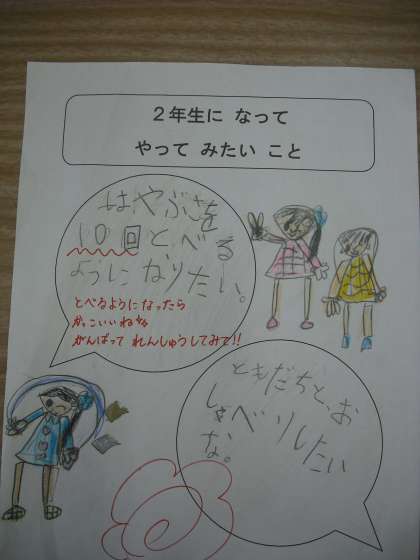 2年生に なって
やって みたい こと
はやぶさを
10回とべる
ようになりたい。
とべるようになったら
かっこいいね
がんばって れんしゅうしてみて!!
ともだちと、お
しゃべりしたい
な。